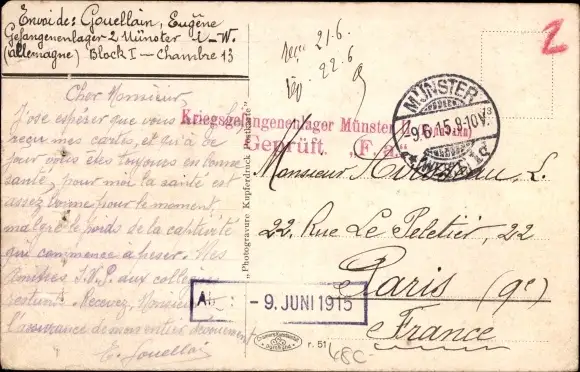 Envoi de: Gouellain, Eugène
Gefangenenlager 2 Münster -i-W.
(allemagne) Block I — Chambre 13
Cher Monsieur,
J'ose espérer que vous
reçu mes cartes, et qu'à
pour votre êtes toujours en bonne
santé, pour moi la santé est
assez bonne pour le moment
malgré le poids de la captivité
qui commence à user. Mes
amitiés S.V.P. aux collègues
Recevez, Monsieur
l'assurance de mon entier dévouement
E. Gouellain
"Photogravure Kupferdruck Postkarte"
21-6.
22.6
2
MÜNSTER
9.6.15.8-10V.
(WESTF.)
Kriegsgefangenenlager Münster 2
Geprüft. F. a
9. JUNI 1915
Monsieur L.
22, Rue Le Peletier, 22
Paris (9e)
France
r. 51
48C-